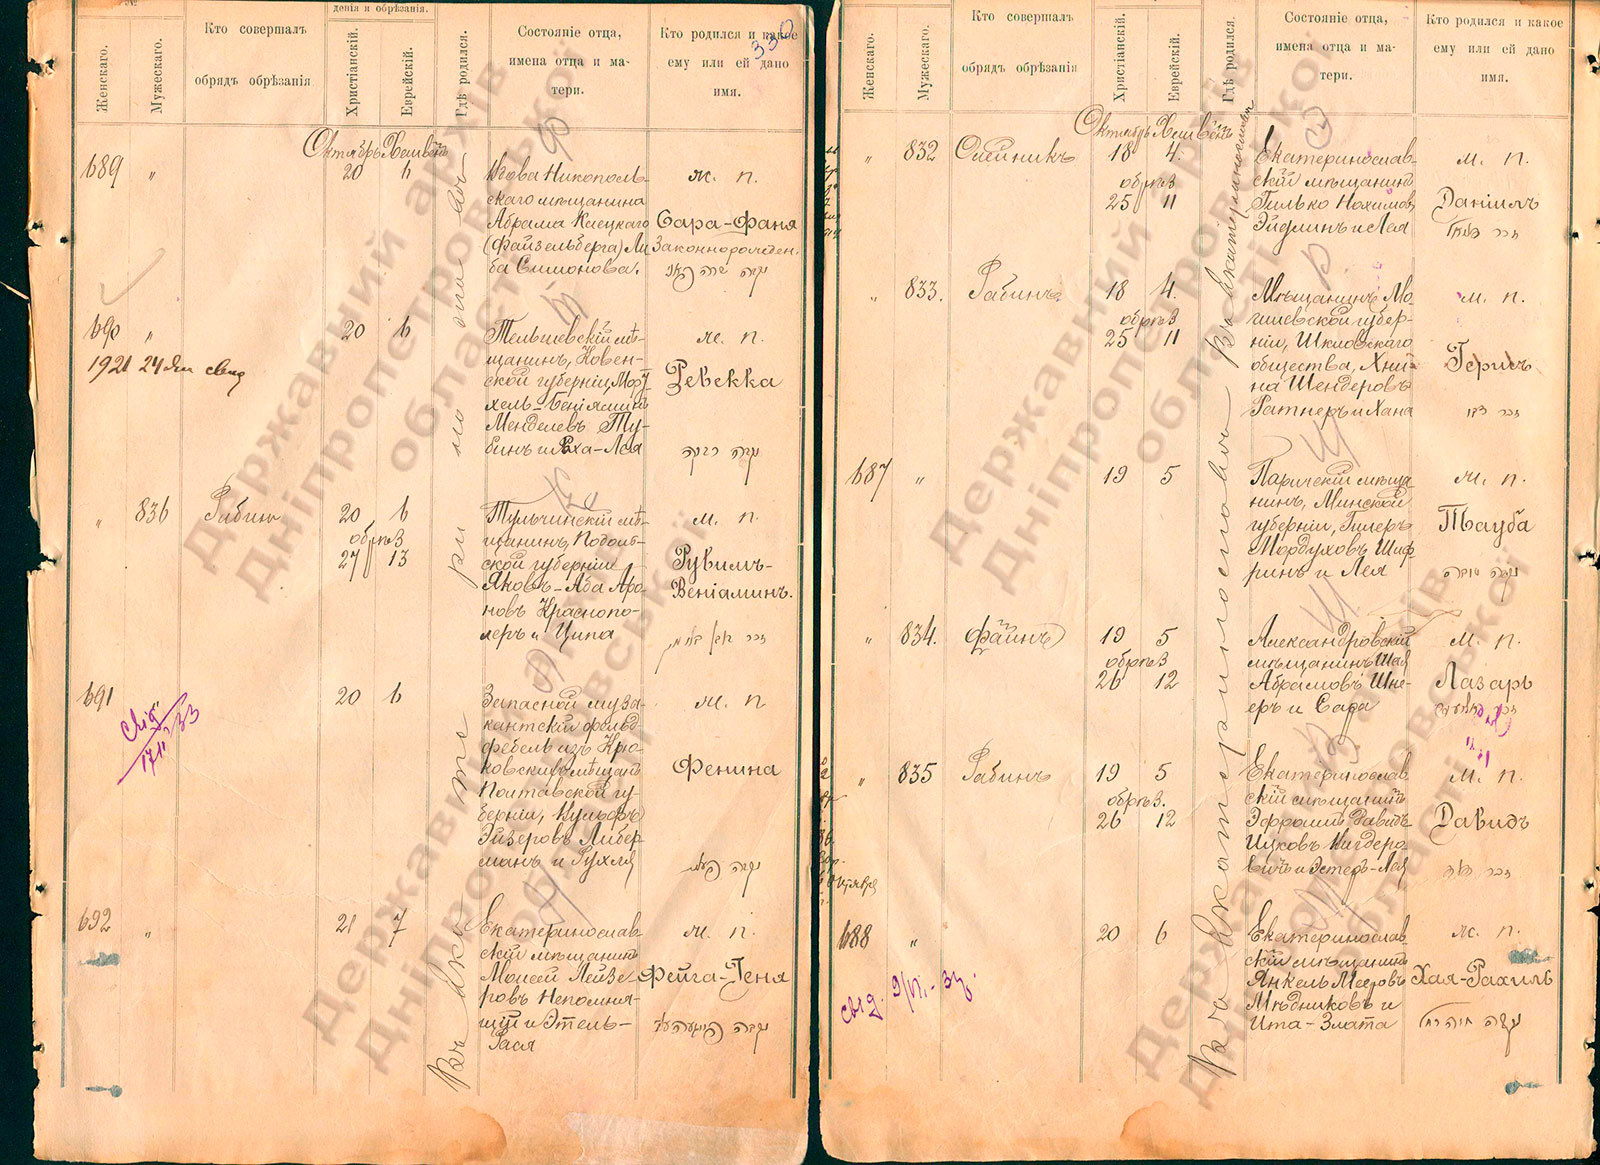 №
денія и обрѣзанія
Женскаго.
Мужескаго.
Кто совершалъ
обрядъ обрѣзанія
Христіанскій.
Еврейскій.
Гдѣ родился.
Состояніе отца,
имена отца и ма-
тери.
Кто родился и какое
ему или ей дано
имя.
Октябрь Хешвенъ
689 " 20 6
Никополь-
скаго мѣщанина
Абрама Клецкаго
(Файзельберга) Ли
ба Симонова.
ж. п.
Сара-Фаня
Законнорожден.
690 " 20 6
1921 24
Тельшевскій мѣ-
щанинъ, Ковен-
ской губерніи,
хель-Беніяминъ
Менделевъ Ту-
бинъ и Раха-Лея
ж. п.
Ревекка
נערה רבקה
" 836 Рабин 20 6
обрѣз
27 13
Тульчинскій мѣ-
щанинъ, Подоль-
ской губерніи
Яковъ-Аба Аро-
новъ Краснопо-
леръ и Ципа
м. п.
Рувимъ-
Веніаминъ.
691 " 20 6
свід
17 II 33
Запасной музы-
кантскій фельд-
фебель изъ Крю-
ковскихъ мѣщанъ
Полтавской гу-
берніи, Вульфъ
Эйзеровъ Либер-
манъ и Рухля
ж. п.
Фенина
692 " 21 7
Екатеринослав-
скій мѣщанинъ
Моисей Лейзе-
ровъ Непомня-
щій и Этель-
Рася
ж. п.
Фейга-Геня
Женскаго.
Мужескаго.
Кто совершалъ
обрядъ обрѣзанія
Христіанскій.
Еврейскій.
Гдѣ родился.
Состояніе отца,
имена отца и ма-
тери.
Кто родился и какое
ему или ей дано
имя.
Октябрь Хешвенъ
" 832 Олейникъ 18 4.
обрѣз
25 11
Екатеринослав-
скій мѣщанинъ
Гилько Нохимовъ
Эйдлинъ и Лея
м. п.
Даніилъ
זכר דניאל
" 833. Рабинъ 18 4.
обрѣз
25 11
Мѣщанинъ Мо-
гилевской губер-
ніи, Шкловскаго
общества,
Шендеровъ
Ратнеръ и Хана
м. п.
687 " 19 5
Паричскій мѣща-
нинъ, Минской
губерніи, Гилеръ
Мордуховъ Шиф-
ринъ и Лея
ж. п.
Тауба
נערה טובה
" 834. Файнъ 19 5
обрѣз
26 12
Александровскій
мѣщанинъ Шая
Абрамовъ Шне-
еръ и Сара
м. п.
Лазарь
" 835 Рабинъ 19 5
обрѣз.
26 12
Екатеринослав
скій мѣщанинъ
Эфроимъ Давидъ
Ицковъ Нигдеро-
вичъ и Эстеръ-Лея
м. п.
Давидъ
זכר דוד
688 " 20 6
свід. 9/VI.-
Екатеринослав
скій мѣщанинъ
Янкель Мееровъ
Мѣдниковъ и
Ита-Злата
ж. п.
Хая-Рахиль
נערה חיה רחל
Въ Екатеринославѣ
Державний архів
Дніпропетровської
області